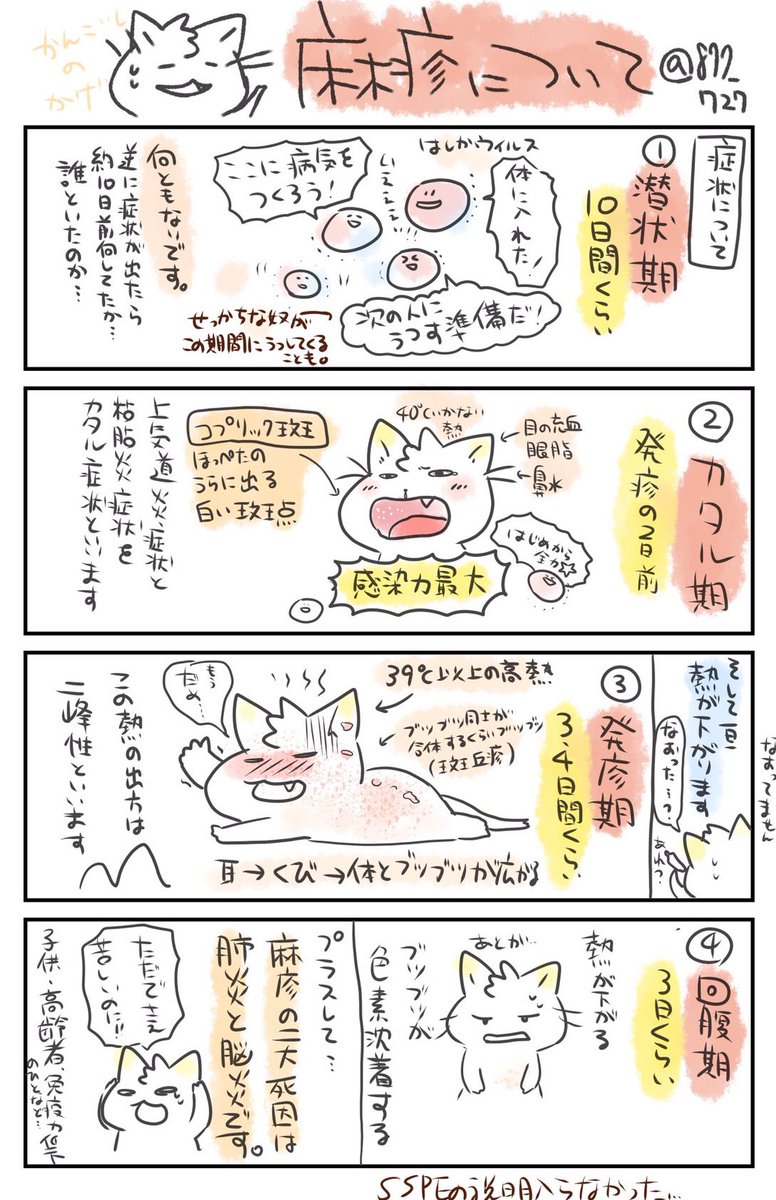 かんごしのかげ
麻疹について
@877_727
症状について
①潜状期
10日間くらい
はしかウィルス
体に入れた!
いえええい
ここに病気をつくろう!
次の人にうつす準備だ!
せっかちな奴が
この期間にうつしてくる
ことも。
何ともないです。
逆に症状が出たら
約10日前何してたか…
誰といたのか…
②カタル期
発疹の2日前
40℃いかない
熱
目の充血
眼脂
鼻水
コプリック斑
ほっぺたの
うらに出る
白い斑点
はじめから
全力
感染力最大
上気道炎症状と
粘脂炎症状を
カタル症状といいます
そして一旦
熱が下がります
なおった…?
あれ?
なおってません
③発疹期
3、4日間くらい
39℃以上の高熱
ブツブツ同士が
合体するくらいブツブツ
(斑丘疹)
もうだめ…
耳→くび→体とブツブツが広がる
この熱の出方は
二峰性といいます
④回腹期
3日くらい
熱が下がる
あとが…
ブツブツが
色素沈着する
プラスして…
麻疹の二大死因は
肺炎と脳炎です。
ただでさえ
苦しいのに!!
子供・高齢者、免疫力低下
のひとなど…
SSPEの説明入らなかった…